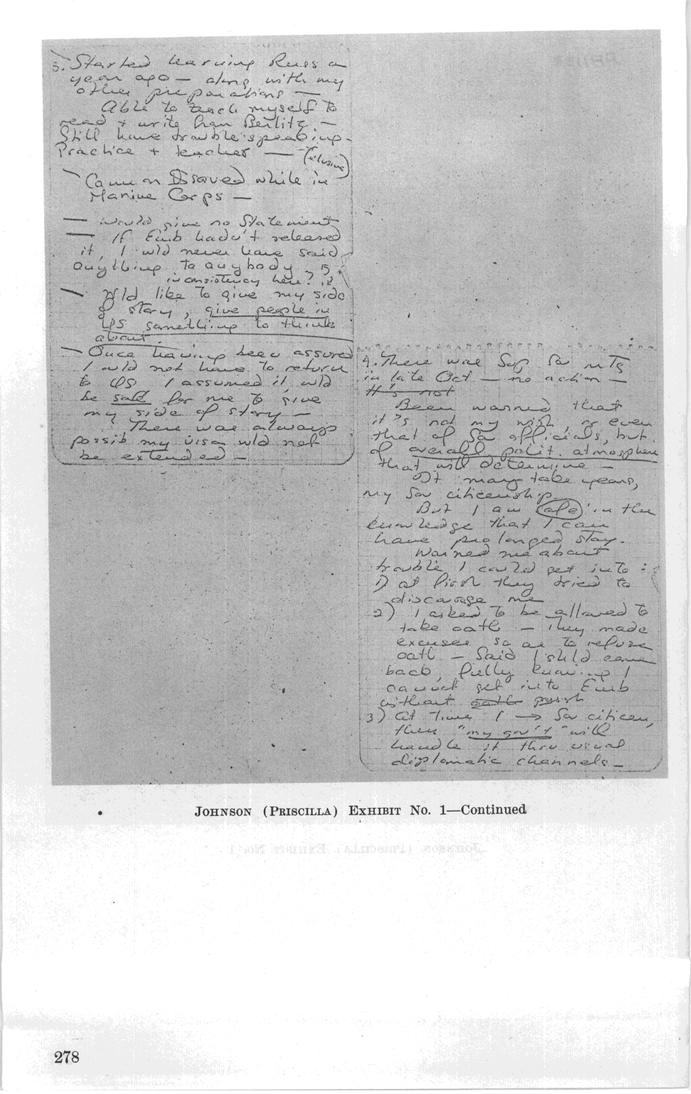 3. Started learning Russ a
year ago — along with my
other preparations —
Able to teach myself to
read + write from Berlitz —
Still have trouble speaking.
Practice + teacher — (elusive)
— Came on Issaved while in
Marine Corps —
— Would give no Statement
— If Emb hadn't released
it, I wld never have said
anything to anybody,
inconsistency here?
— Wld like to give my side
of story, give people in
US something to think
about.
— Once having been assured
I wld not have to return
to US I assumed it wld
be safe for me to give
my side of story —
There was always
possib my visa wld not
be extended —
4. There was Sup Sov mtg
in late Oct — no action —
It's not
Been warned that
it's not my wish, or even
that of Sov officials, but
of overall polit. atmosphere
that will determine —
It may take years,
my Sov citizenship
But I am safe in the
knowledge that I can
have prolonged stay.
Warned me about
trouble I could get into:
1) at first they tried to
discourage me
2) I asked to be allowed to
take oath — They made
excuses so as to refuse
oath — Said I shld come
back, fully knowing I
cannot get into Emb
without oath
3) At time I → Sov citizen,
then "my gov't" will
handle it thru usual
diplomatic channels —
JOHNSON (PRISCILLA) EXHIBIT No. 1—Continued
278